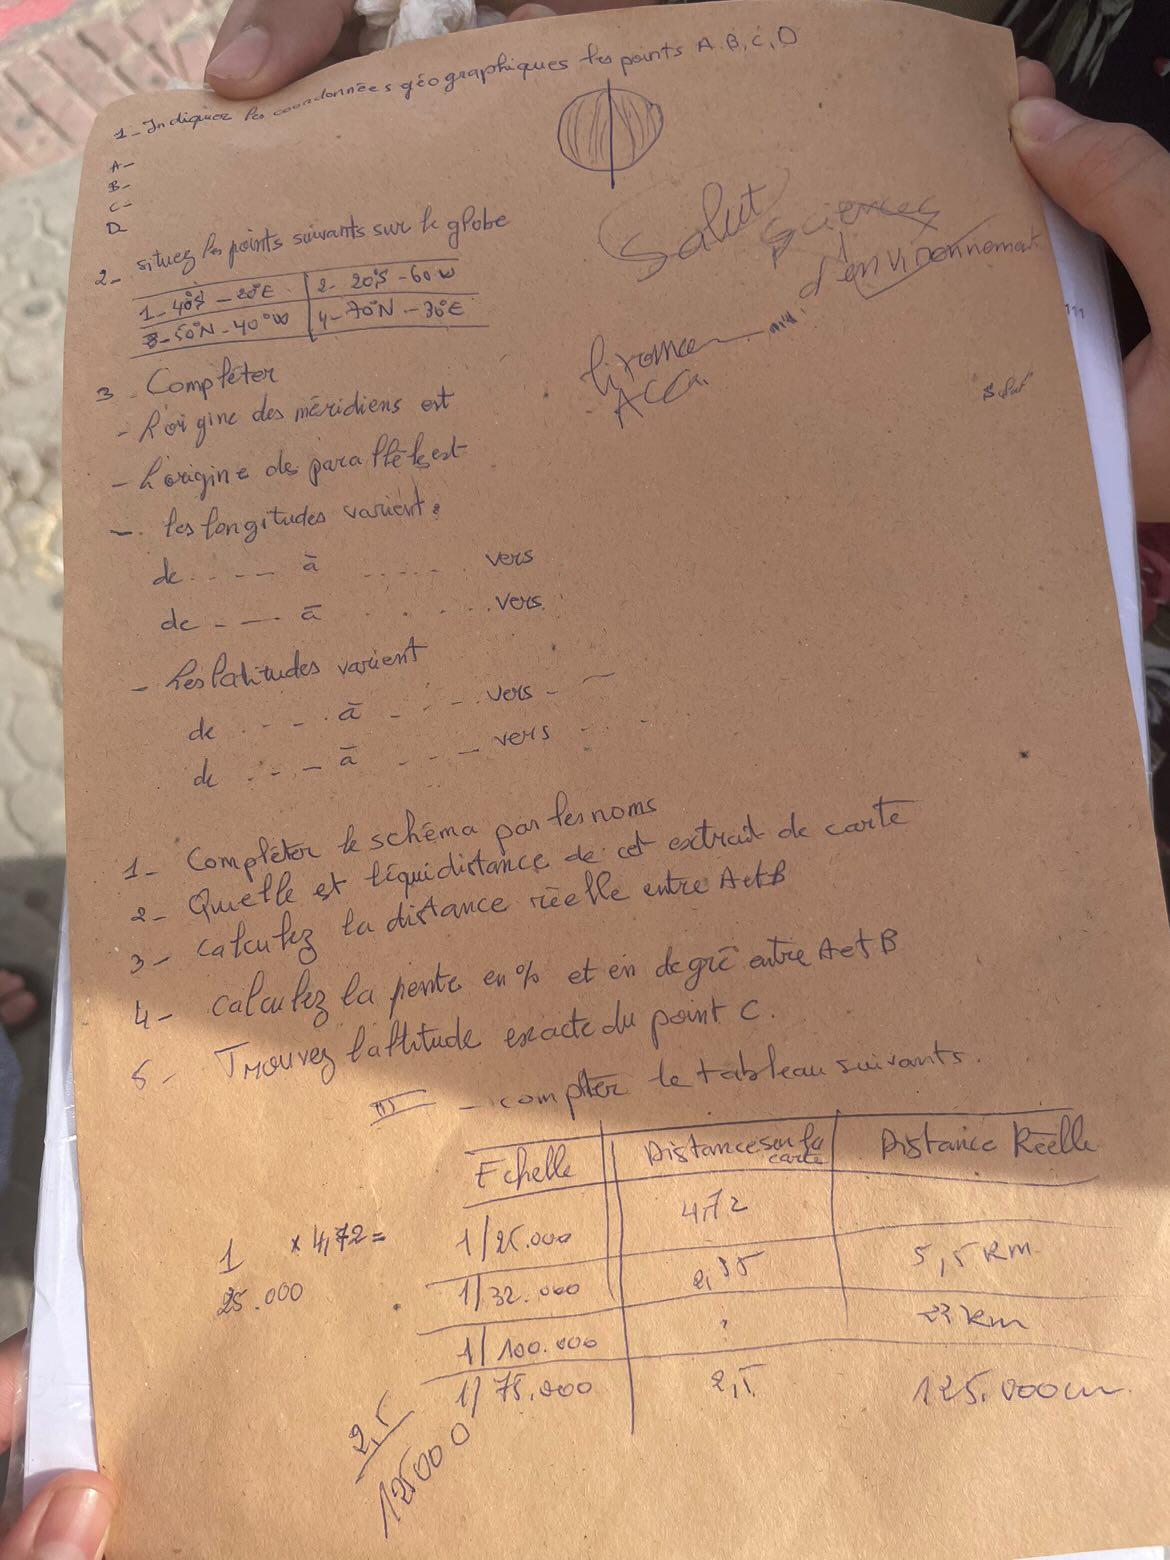 1- Indiquez les coordonnées géographiques les points A.B,C,D
A-
B-
C-
D
2- situez les points suivants sur le globe
1- 40°S - 20°E | 2- 20°S - 60 W
3- 50°N - 40°W | 4- 70°N - 30°E
Salut
sciences
d'environnement
3 - Compléter
- L'origine des méridiens est
- L'origine des parallèles est
- les longitudes varient:
de ..... à ..... vers
de ..... à ..... vers
- Les latitudes varient
de ..... à ..... vers ...
de ..... à ..... vers ...
1- Compléter le schéma par les noms
2- Quelle et l'équidistance de cet extrait de carte
3- calculez la distance réelle entre A et B
4- calculez la pente en % et en degré entre A et B
5- Trouvez l'altitude exacte du point C.
III - compléter le tableau suivants.
Echelle | Distance sur la carte | Distance Réelle
1/25.000 | 4,72
1/32.000 | 5,5 km
1/100.000 | ? | 23 km
1/75.000 | 2,5 | 125.000cm
1/25.000 × 4,72 =
2,5
125000